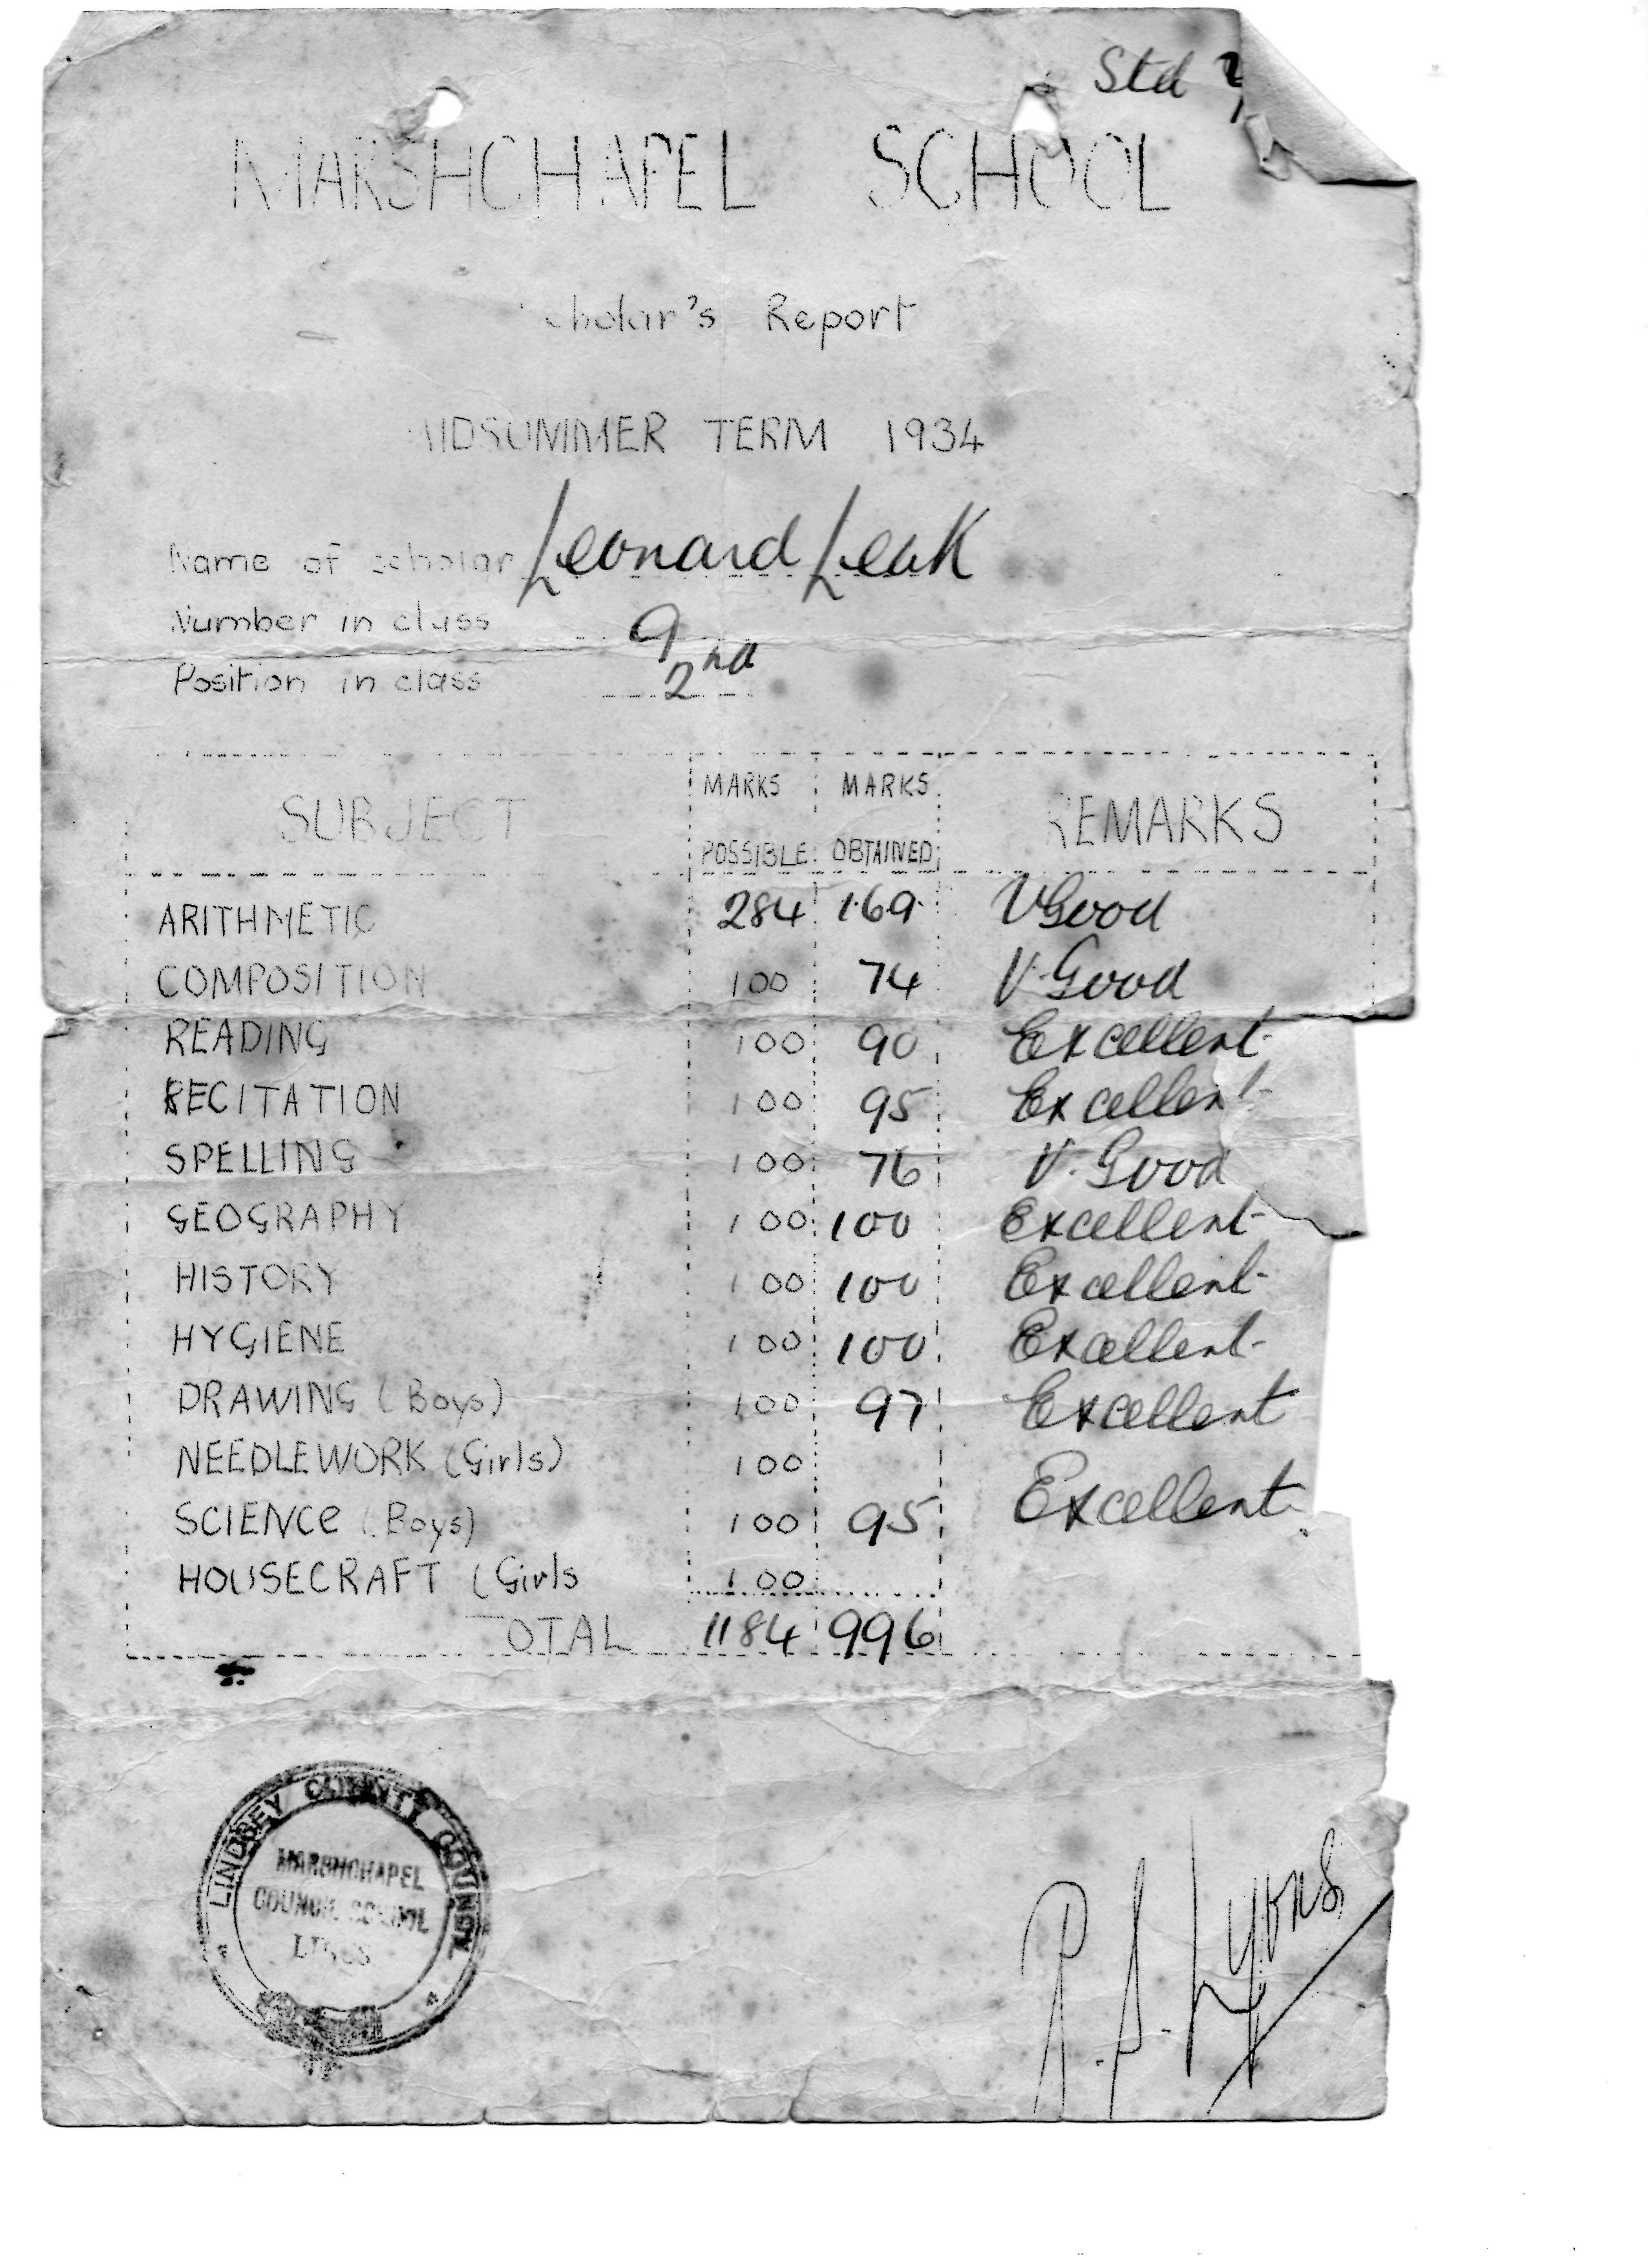 Std
MARSHCHAPEL SCHOOL
Scholar's Report
MIDSUMMER TERM 1934
Name of scholar Leonard Leak
Number in class 9
Position in class 2nd
SUBJECT MARKS POSSIBLE MARKS OBTAINED REMARKS
ARITHMETIC 284 169 V Good
COMPOSITION 100 74 V. Good
READING 100 90 Excellent
RECITATION 100 95 Excellent
SPELLING 100 76 V. Good
GEOGRAPHY 100 100 Excellent
HISTORY 100 100 Excellent
HYGIENE 100 100 Excellent
DRAWING (Boys) 100 97 Excellent
NEEDLEWORK (Girls) 100
SCIENCe (Boys) 100 95 Excellent
HOUSECRAFT (Girls 100
TOTAL 1184 996
LINDSEY COUNTY COUNCIL
MARSHCHAPEL
COUNCIL SCHOOL
LINCS
P. S. Lyons